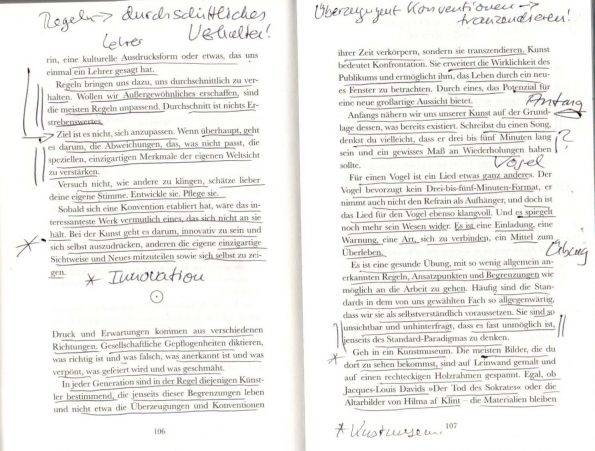 Regeln → durchschnittliches
Verhalten!
Lehrer
rin, eine kulturelle Ausdrucksform oder etwas, das uns
einmal ein Lehrer gesagt hat.
Regeln bringen uns dazu, uns durchschnittlich zu ver-
halten. Wollen wir Außergewöhnliches erschaffen, sind
die meisten Regeln unpassend. Durchschnitt ist nichts Er-
strebenswertes.
Ziel ist es nicht, sich anzupassen. Wenn überhaupt, geht
es darum, die Abweichungen, das, was nicht passt, die
speziellen, einzigartigen Merkmale der eigenen Weltsicht
zu verstärken.
Versuch nicht, wie andere zu klingen, schätze lieber
deine eigene Stimme. Entwickle sie. Pflege sie.
Sobald sich eine Konvention etabliert hat, wäre das in-
teressanteste Werk vermutlich eines, das sich nicht an sie
hält. Bei der Kunst geht es darum, innovativ zu sein und
sich selbst auszudrücken, anderen die eigene einzigartige
Sichtweise und Neues mitzuteilen sowie sich selbst zu zei-
gen.
* Innovation
Druck und Erwartungen kommen aus verschiedenen
Richtungen. Gesellschaftliche Gepflogenheiten diktieren,
was richtig ist und was falsch, was anerkannt ist und was
verpönt, was gefeiert wird und was geschmäht.
In jeder Generation sind in der Regel diejenigen Künst-
ler bestimmend, die jenseits dieser Begrenzungen leben
und nicht etwa die Überzeugungen und Konventionen
106
Konventionen →
tranzendieren!
ihrer Zeit verkörpern, sondern sie transzendieren. Kunst
bedeutet Konfrontation. Sie erweitert die Wirklichkeit des
Publikums und ermöglicht ihm, das Leben durch ein neu-
es Fenster zu betrachten. Durch eines, das Potenzial für
eine neue großartige Aussicht bietet.
Anfang
Anfangs nähern wir uns unserer Kunst auf der Grund-
lage dessen, was bereits existiert. Schreibst du einen Song,
denkst du vielleicht, dass er drei bis fünf Minuten lang
sein und ein gewisses Maß an Wiederholungen haben
sollte.
Vogel
Für einen Vogel ist ein Lied etwas ganz anderes. Der
Vogel bevorzugt kein Drei-bis-fünf-Minuten-Format, er
nimmt auch nicht den Refrain als Aufhänger, und doch ist
das Lied für den Vogel ebenso klangvoll. Und es spiegelt
noch mehr sein Wesen wider. Es ist eine Einladung, eine
Warnung, eine Art, sich zu verbinden, ein Mittel zum
Überleben.
Übung
Es ist eine gesunde Übung, mit so wenig allgemein an-
erkannten Regeln, Ansatzpunkten und Begrenzungen wie
möglich an die Arbeit zu gehen. Häufig sind die Stan-
dards in dem von uns gewählten Fach so allgegenwärtig,
dass wir sie als selbstverständlich voraussetzen. Sie sind so
unsichtbar und unhinterfragt, dass es fast unmöglich ist,
jenseits des Standard-Paradigmas zu denken.
Geh in ein Kunstmuseum. Die meisten Bilder, die du
dort zu sehen bekommst, sind auf Leinwand gemalt und
auf einen rechteckigen Holzrahmen gespannt. Egal, ob
Jacques-Louis Davids »Der Tod des Sokrates« oder die
Altarbilder von Hilma af Klint – die Materialien bleiben
107
* Kunstmuseum